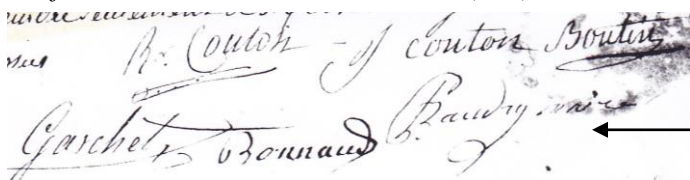 R. Couton J couton Boutin
Garchet Bonnaud Baudry maire